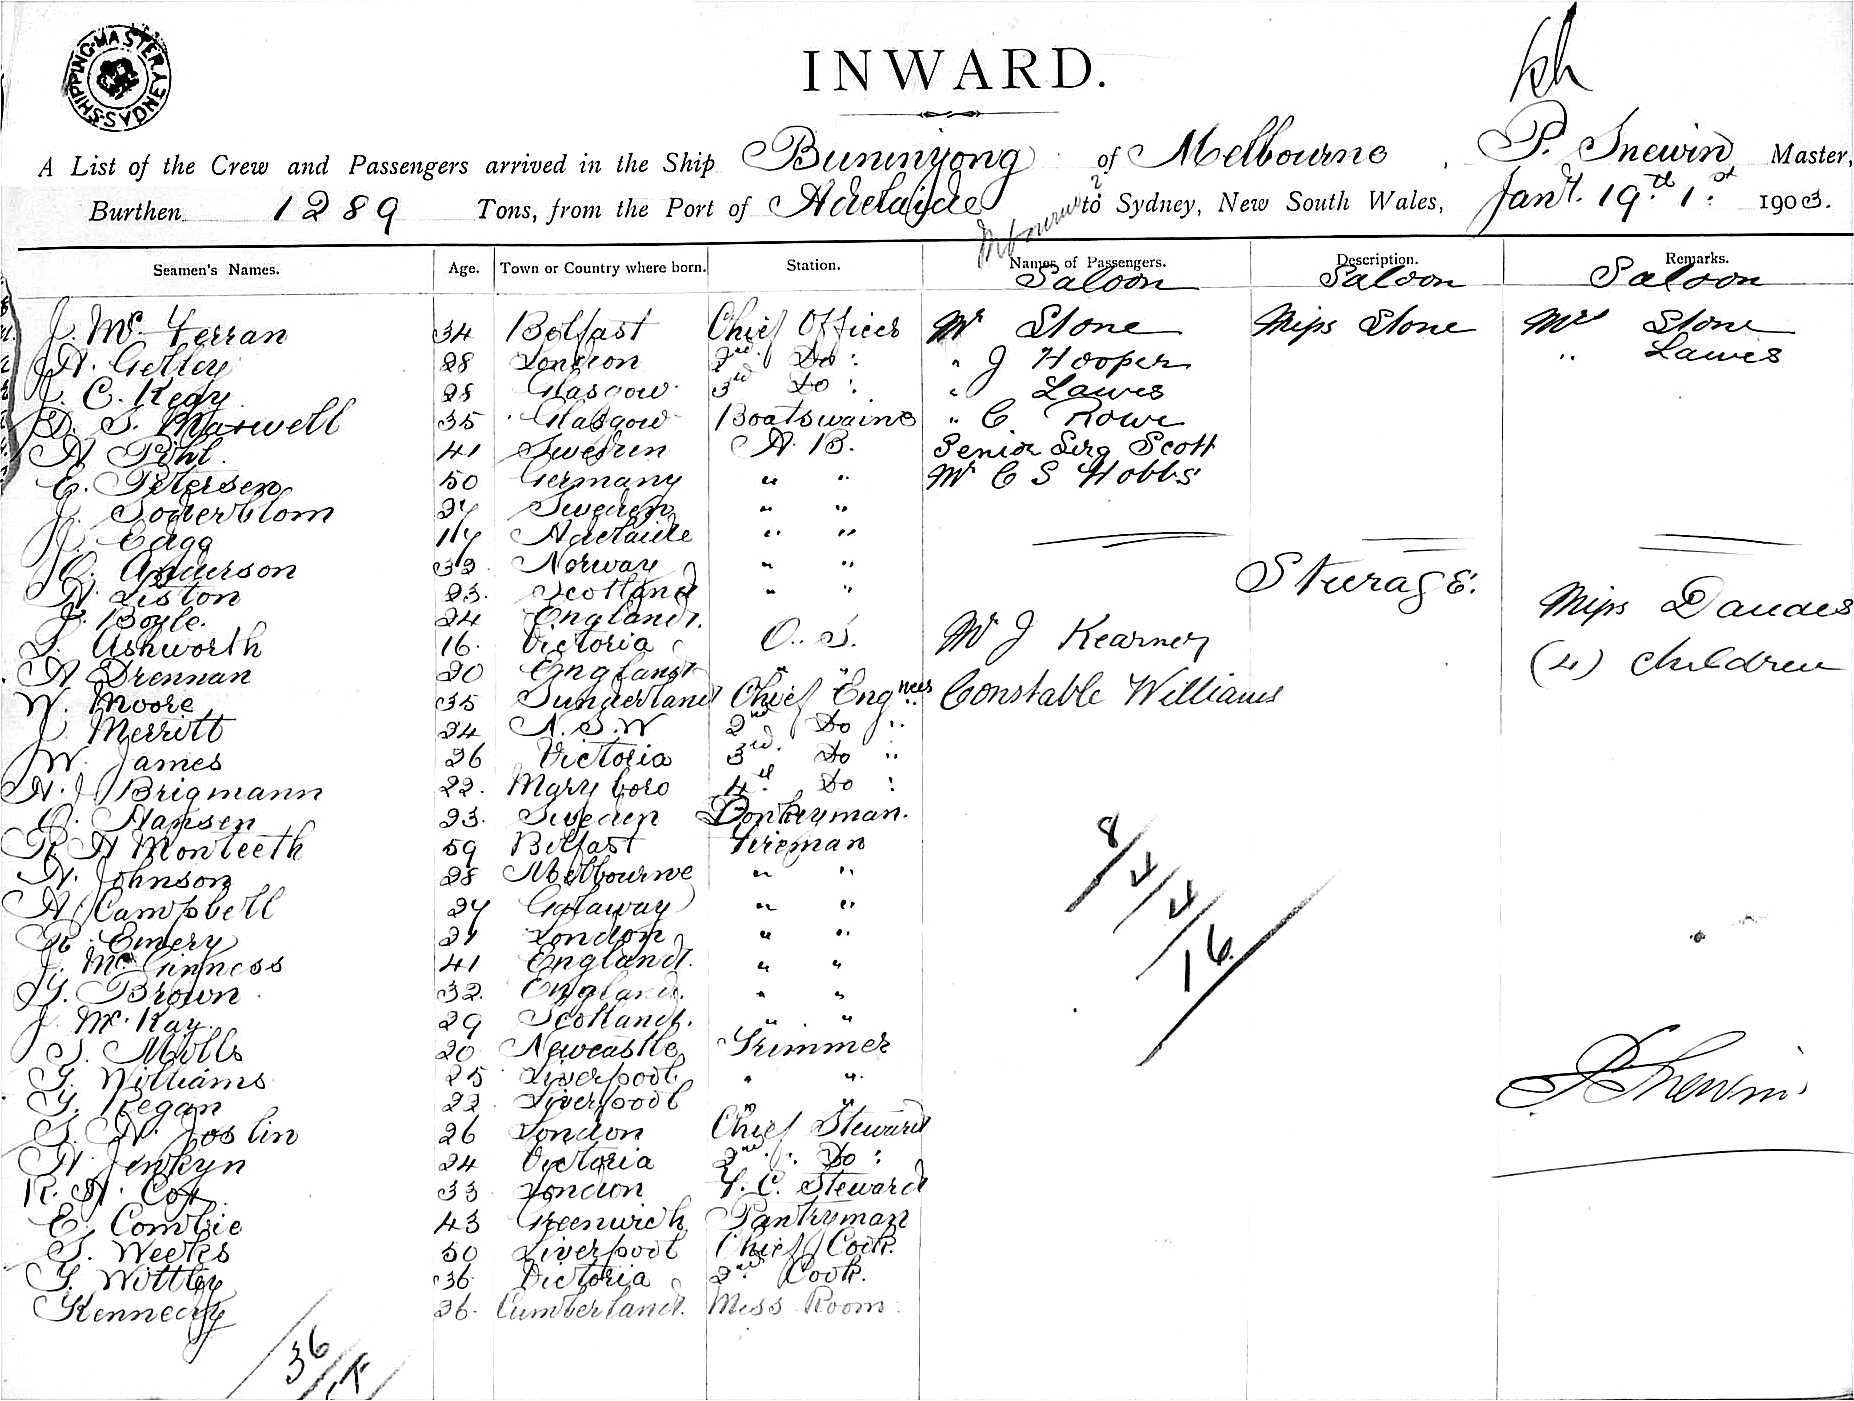 SHIPPING MASTER SYDNEY
INWARD.
A List of the Crew and Passengers arrived in the Ship Buninyong of Melbourne, P. Snewin Master,
Burthen 1289 Tons, from the Port of Adelaide to Sydney, New South Wales, Jany. 19th 1st 1903.
Seamen's Names. Age. Town or Country where born. Station. Names of Passengers. Description. Remarks.
Saloon Saloon Saloon
J. Mc Ferran 34 Belfast Chief Officer Mr Stone Miss Stone Mrs Stone
A. Gelley 28 London 2nd Do : " J Hooper " Lawes
J. C. Keay 28 Glasgow 3rd Do : " Lawes
D. S. Maxwell 35 Glasgow Boatswaine " C Rowe
A Pihl. 41 Sweden A. B. Senior Serg Scott
E. Petersen 50 Germany " " Mr C S Hobbs
J. Soderblom 27 Sweden " "
J. Edgg Adelaide " "
C. Anderson 32. Norway " "
Steerage.
A. Liston 23. Scotland " " Miss Daudes
J. Boyle. 24 England.
S. Ashworth 16. Victoria O. S. Mr J Kearney
A Drennan 20 England " " (4) Children
W. Moore 35 Sunderland Chief Engneer Constable Williams
J. Merritt 24 N. S. W 2nd Do "
W. James 26 Victoria 3rd. Do "
A. J Brigmann 22. Maryboro 4th Do :
O. Hansen 23. Sweden Donkeyman.
R A Monteeth 59 Belfast Fireman
A. Johnson 28 Melbourne " "
A Campbell 27 Galaway " "
R. Emery 21 London " "
J. Mc Ginness 41 England. " "
G. Brown 32. England. " "
J. Mc Kay 29 Scotland. " "
S. Mills 20 Newcastle Trimmer
G. Williams 25 Liverpool " "
G. Regan 22 Liverpool " "
S. A. Joslin 26 London Chief Steward
A. Jenkyn 24 Victoria 2nd " Do :
R. A. Cox 33 London F. C. Steward
E. Combie 43 Greenwich Pantryman
S. Weeks 50 Liverpool Chief Cook.
G. Wittley 36 Victoria 2nd Cook.
Kennedy 26. Cumberland. Mess Room
8/4/4/16
P Snewin
36